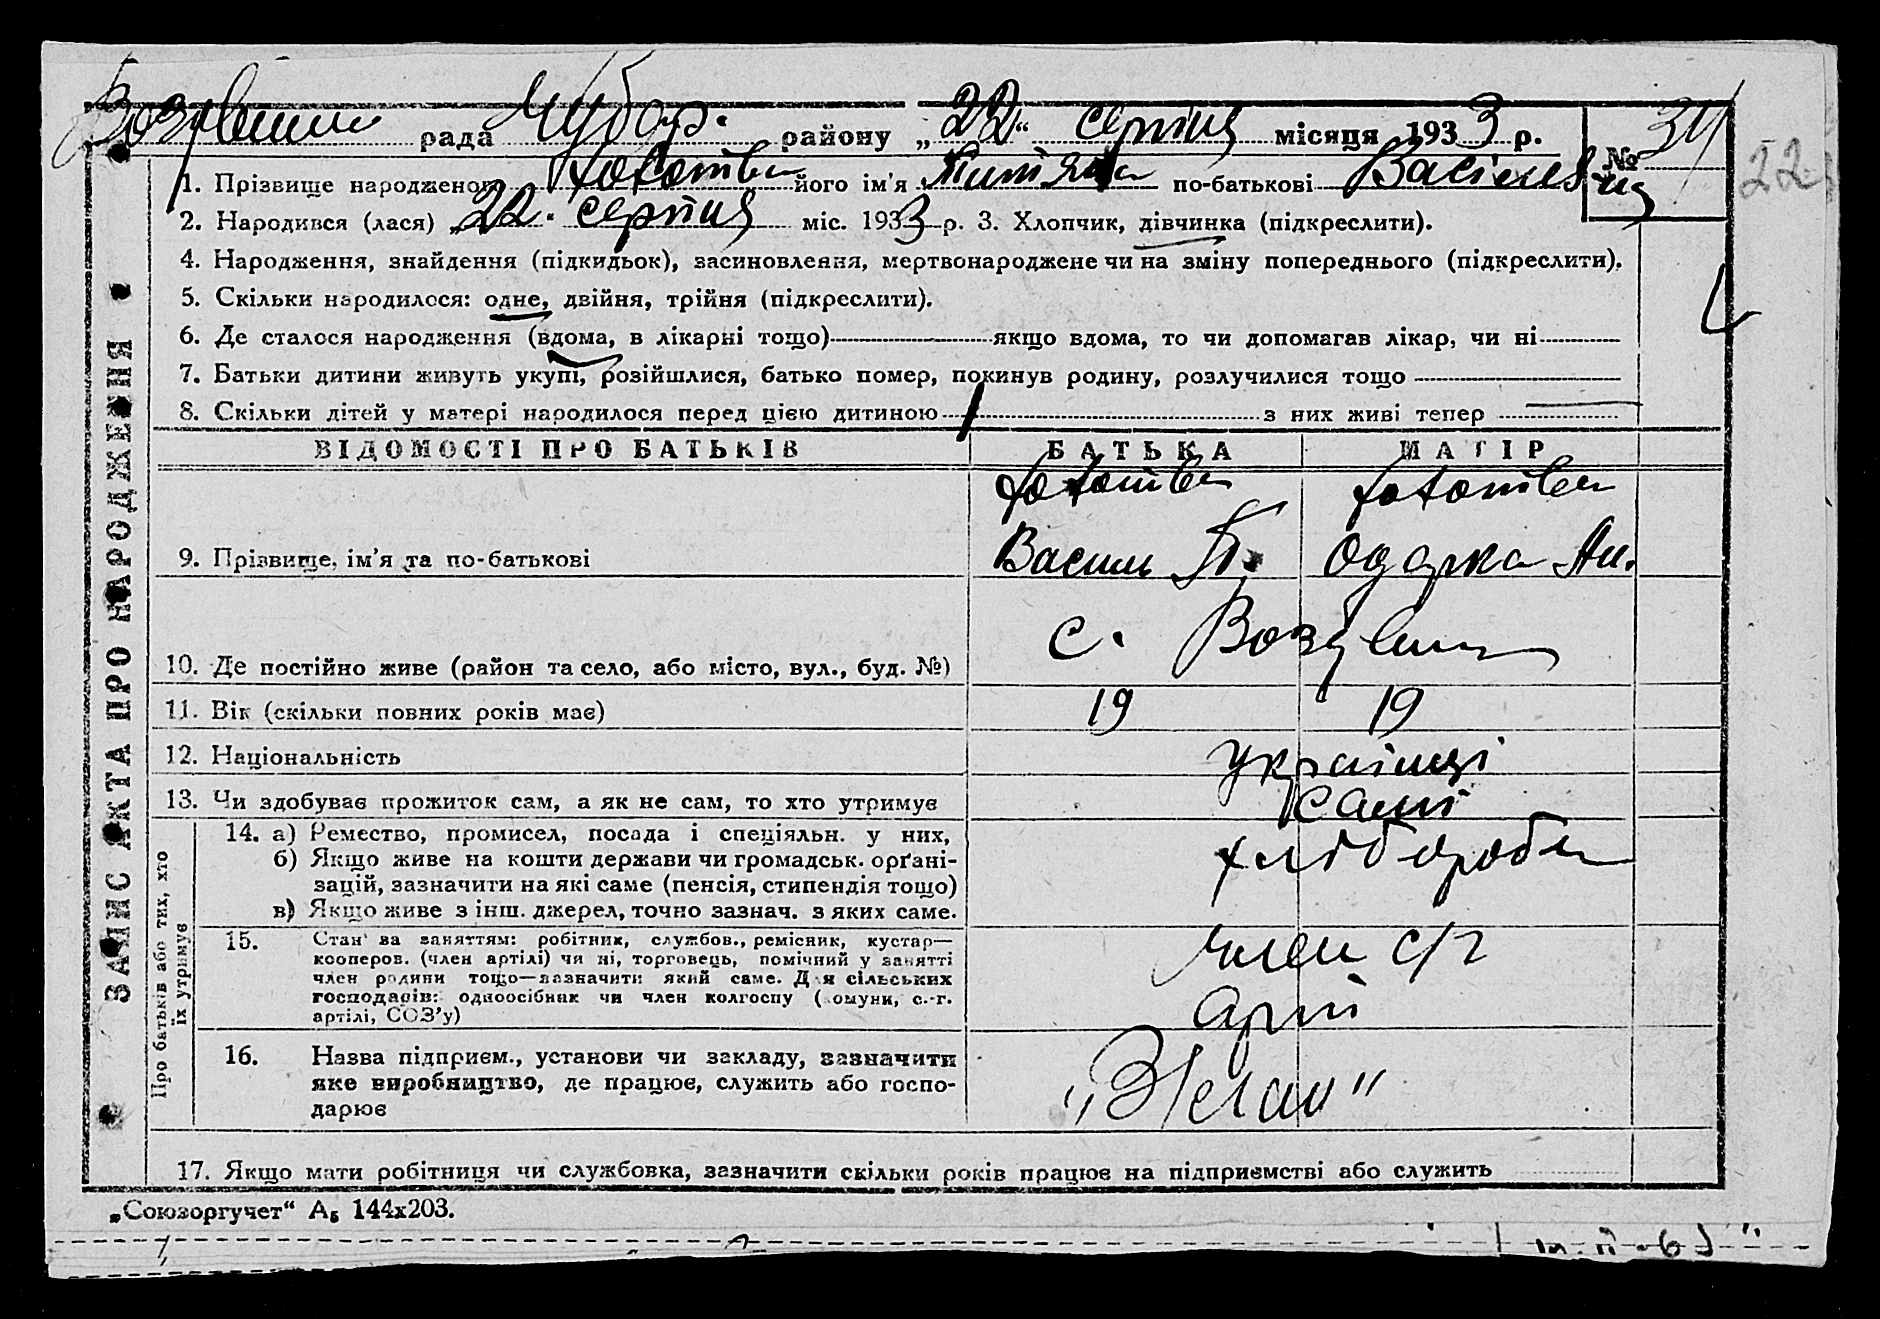 рада Чубар. району „22“ серпня місяця 1933 р.
№ 34
22
1. Прізвище народженого його ім'я по-батькові Василів
2. Народився (лася) „22. серпня міс. 1933 р. 3. Хлопчик, дівчинка (підкреслити).
4. Народження, знайдення (підкидьок), засиновлення, мертвонароджене чи на зміну попереднього (підкреслити).
5. Скільки народилося: одне, двійня, трійня (підкреслити).
6. Де сталося народження (вдома, в лікарні тощо) якщо вдома, то чи допомагав лікар, чи ні
7. Батьки дитини живуть укупі, розійшлися, батько помер, покинув родину, розлучилися тощо —
8. Скільки дітей у матері народилося перед цією дитиною 1 з них живі тепер —
ЗАПИС АКТА ПРО НАРОДЖЕННЯ
ВІДОМОСТІ ПРО БАТЬКІВ БАТЬКА МАТІР
9. Прізвище, ім'я та по-батькові Василь П. Одарка Ан.
10. Де постійно живе (район та село, або місто, вул., буд. №) с.
11. Вік (скільки повних років має) 19 19
12. Національність українці
13. Чи здобуває прожиток сам, а як не сам, то хто утримує самі
Про батьків або тих, хто
їх утримує
14. а) Ремество, промисел, посада і спеціяльн. у них, хлібороби
б) Якщо живе на кошти держави чи громадськ. орґані-
зацій, зазначити на які саме (пенсія, стипендія тощо)
в) Якщо живе з інш. джерел, точно зазнач. з яких саме.
15. Стан за заняттям: робітник, службов., ремісник, кустар— член с/г
кооперов. (член артілі) чи ні, торговець, помічний у занятті
член родини тощо—зазначити який саме. Для сільських
господарів: одноосібник чи член колгоспу (комуни, с.-г. арті
артілі, СОЗ'у)
16. Назва підприєм., установи чи закладу, зазначити
яке виробництво, де працює, служить або госпо-
дарює
17. Якщо мати робітниця чи службовка, зазначити скільки років працює на підприємстві або служить
„Союзоргучет“ А₅ 144х203.